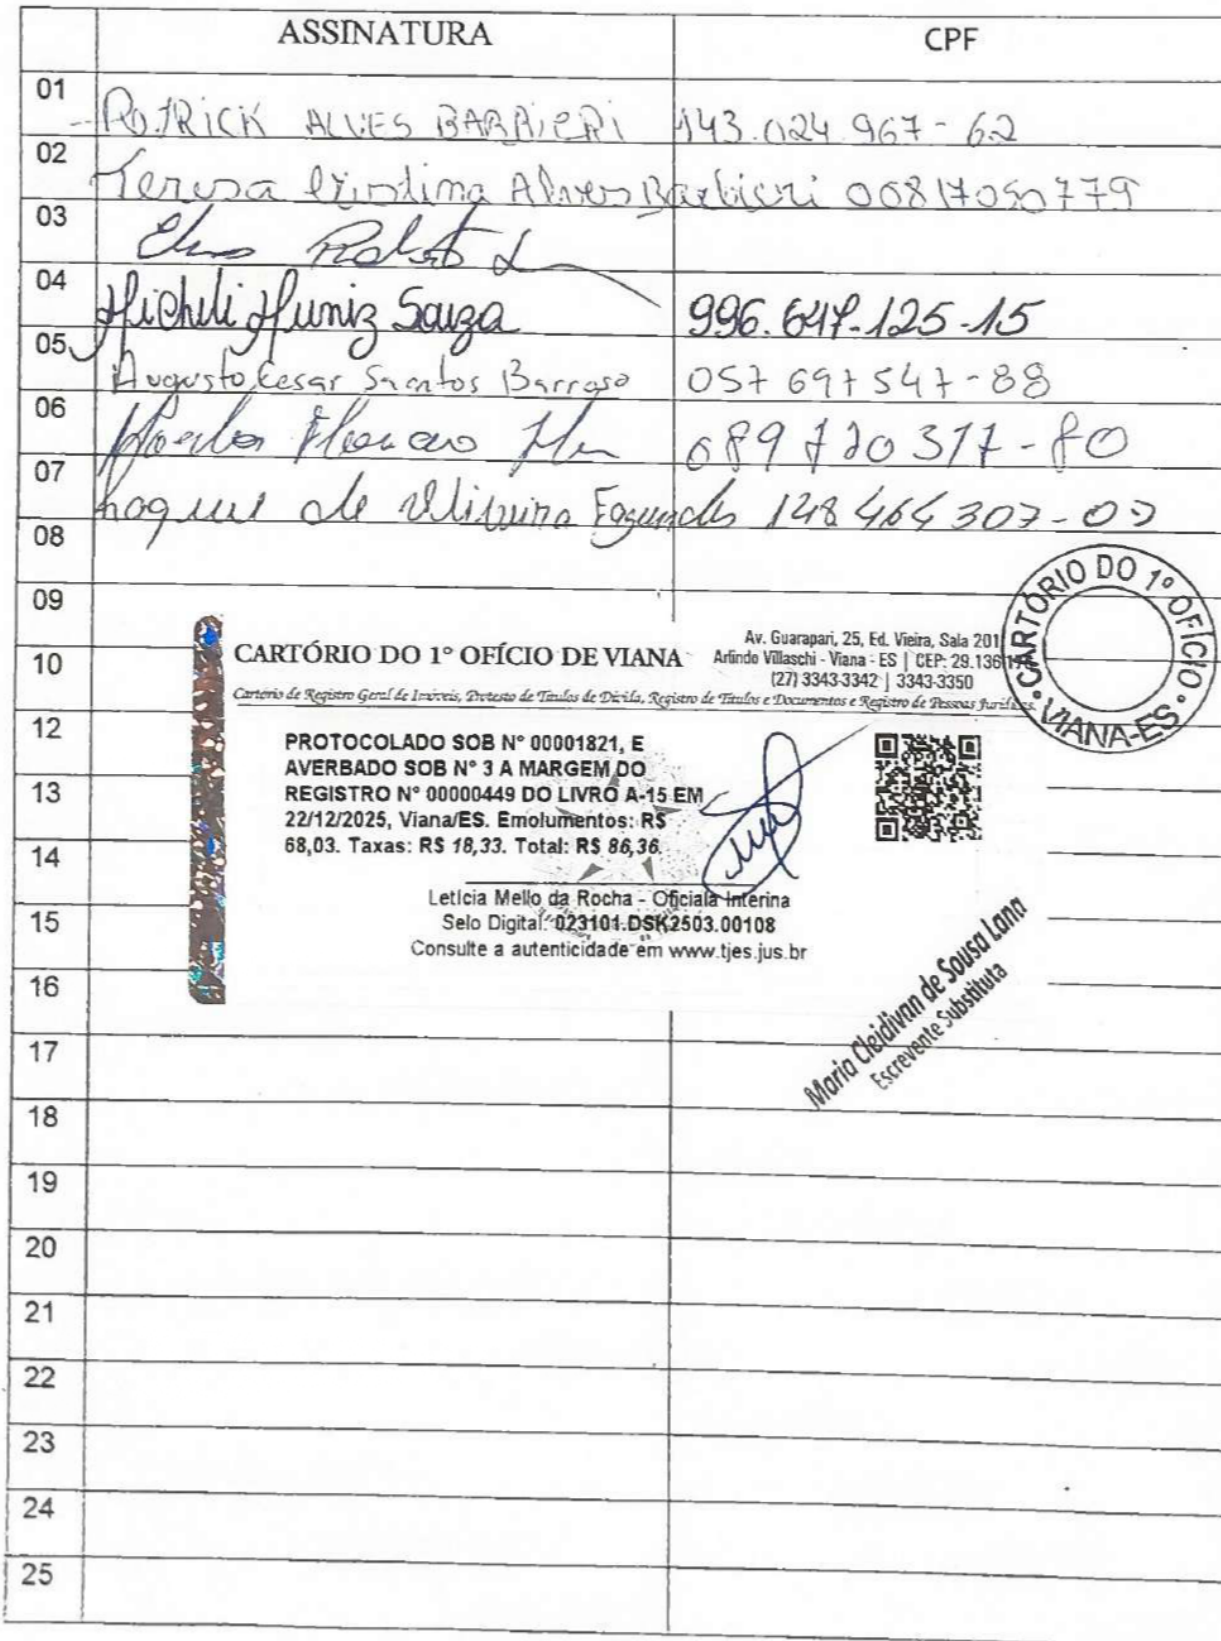 ASSINATURA CPF
01 PATRICK ALVES BARBIERI 143.024.967-62
02 Teresa Cristina Alves Barbieri 00817090779
03 Roberto
04 Micheli Muniz Souza 996.647.125-15
05 Augusto Cesar Santos Barroso 057 697 547-88
06
07 de Oliveira Fagundes 148 464 307-07
08
09
10
12
13
14
15
16
17
18
19
20
21
22
23
24
25
CARTÓRIO DO 1º OFÍCIO DE VIANA
Av. Guarapari, 25, Ed. Vieira, Sala 201
Arlindo Villaschi - Viana - ES | CEP: 29.136
(27) 3343-3342 | 3343-3350
Cartório de Registro Geral de Imóveis, Protesto de Títulos de Dívida, Registro de Títulos e Documentos e Registro de Pessoas Jurídicas.
PROTOCOLADO SOB Nº 00001821, E
AVERBADO SOB Nº 3 A MARGEM DO
REGISTRO Nº 00000449 DO LIVRO A-15 EM
22/12/2025, Viana/ES. Emolumentos: R$
68,03. Taxas: R$ 18,33. Total: R$ 86,36.
Letícia Mello da Rocha - Oficiala Interina
Selo Digital: 023101.DSK2503.00108
Consulte a autenticidade em www.tjes.jus.br
CARTÓRIO DO 1º OFÍCIO • VIANA-ES •
Maria Cleidivan de Sousa Lana
Escrevente Substituta